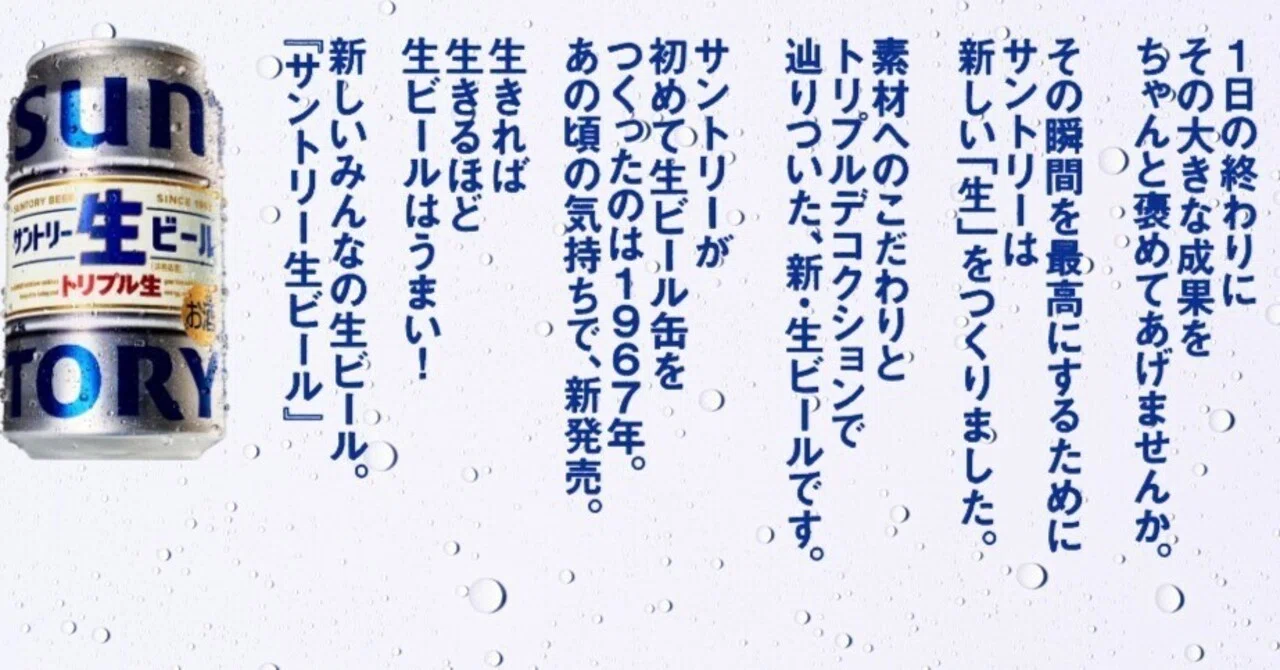 1日の終わりに
その大きな成果を
ちゃんと褒めてあげませんか。
その瞬間を最高にするために
サントリーは
新しい「生」をつくりました。
素材へのこだわりと
トリプルデコクションで
辿りついた、新・生ビールです。
サントリーが
初めて生ビール缶を
つくったのは1967年。
あの頃の気持ちで、新発売。
生きれば
生きるほど
生ビールはうまい！
新しいみんなの生ビール。
『サントリー生ビール』
sun
SUNTORY BEER
SINCE
サントリー生ビール
トリプル生
お酒
TORY